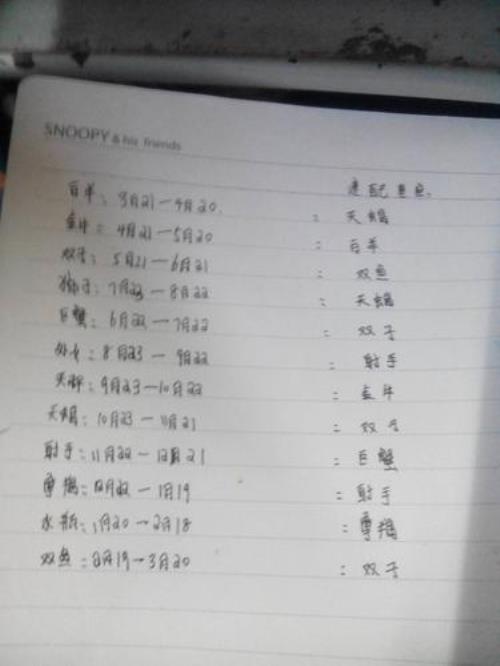 SNOOPY & his friends
速配星座.
白羊: 3月21—4月20. : 天蝎
金牛: 4月21—5月20 : 白羊
双子: 5月21—6月21 : 双鱼
狮子: 7月23—8月22 : 天蝎
巨蟹: 6月22—7月22 : 双子
处女: 8月23—9月22 : 射手
天秤: 9月23—10月22 : 金牛
天蝎: 10月23—11月21 : 双子
射手: 11月22—12月21 : 巨蟹
摩羯: 12月22—1月19 : 射手
水瓶: 1月20—2月18 : 摩羯
双鱼: 2月19—3月20 : 双子